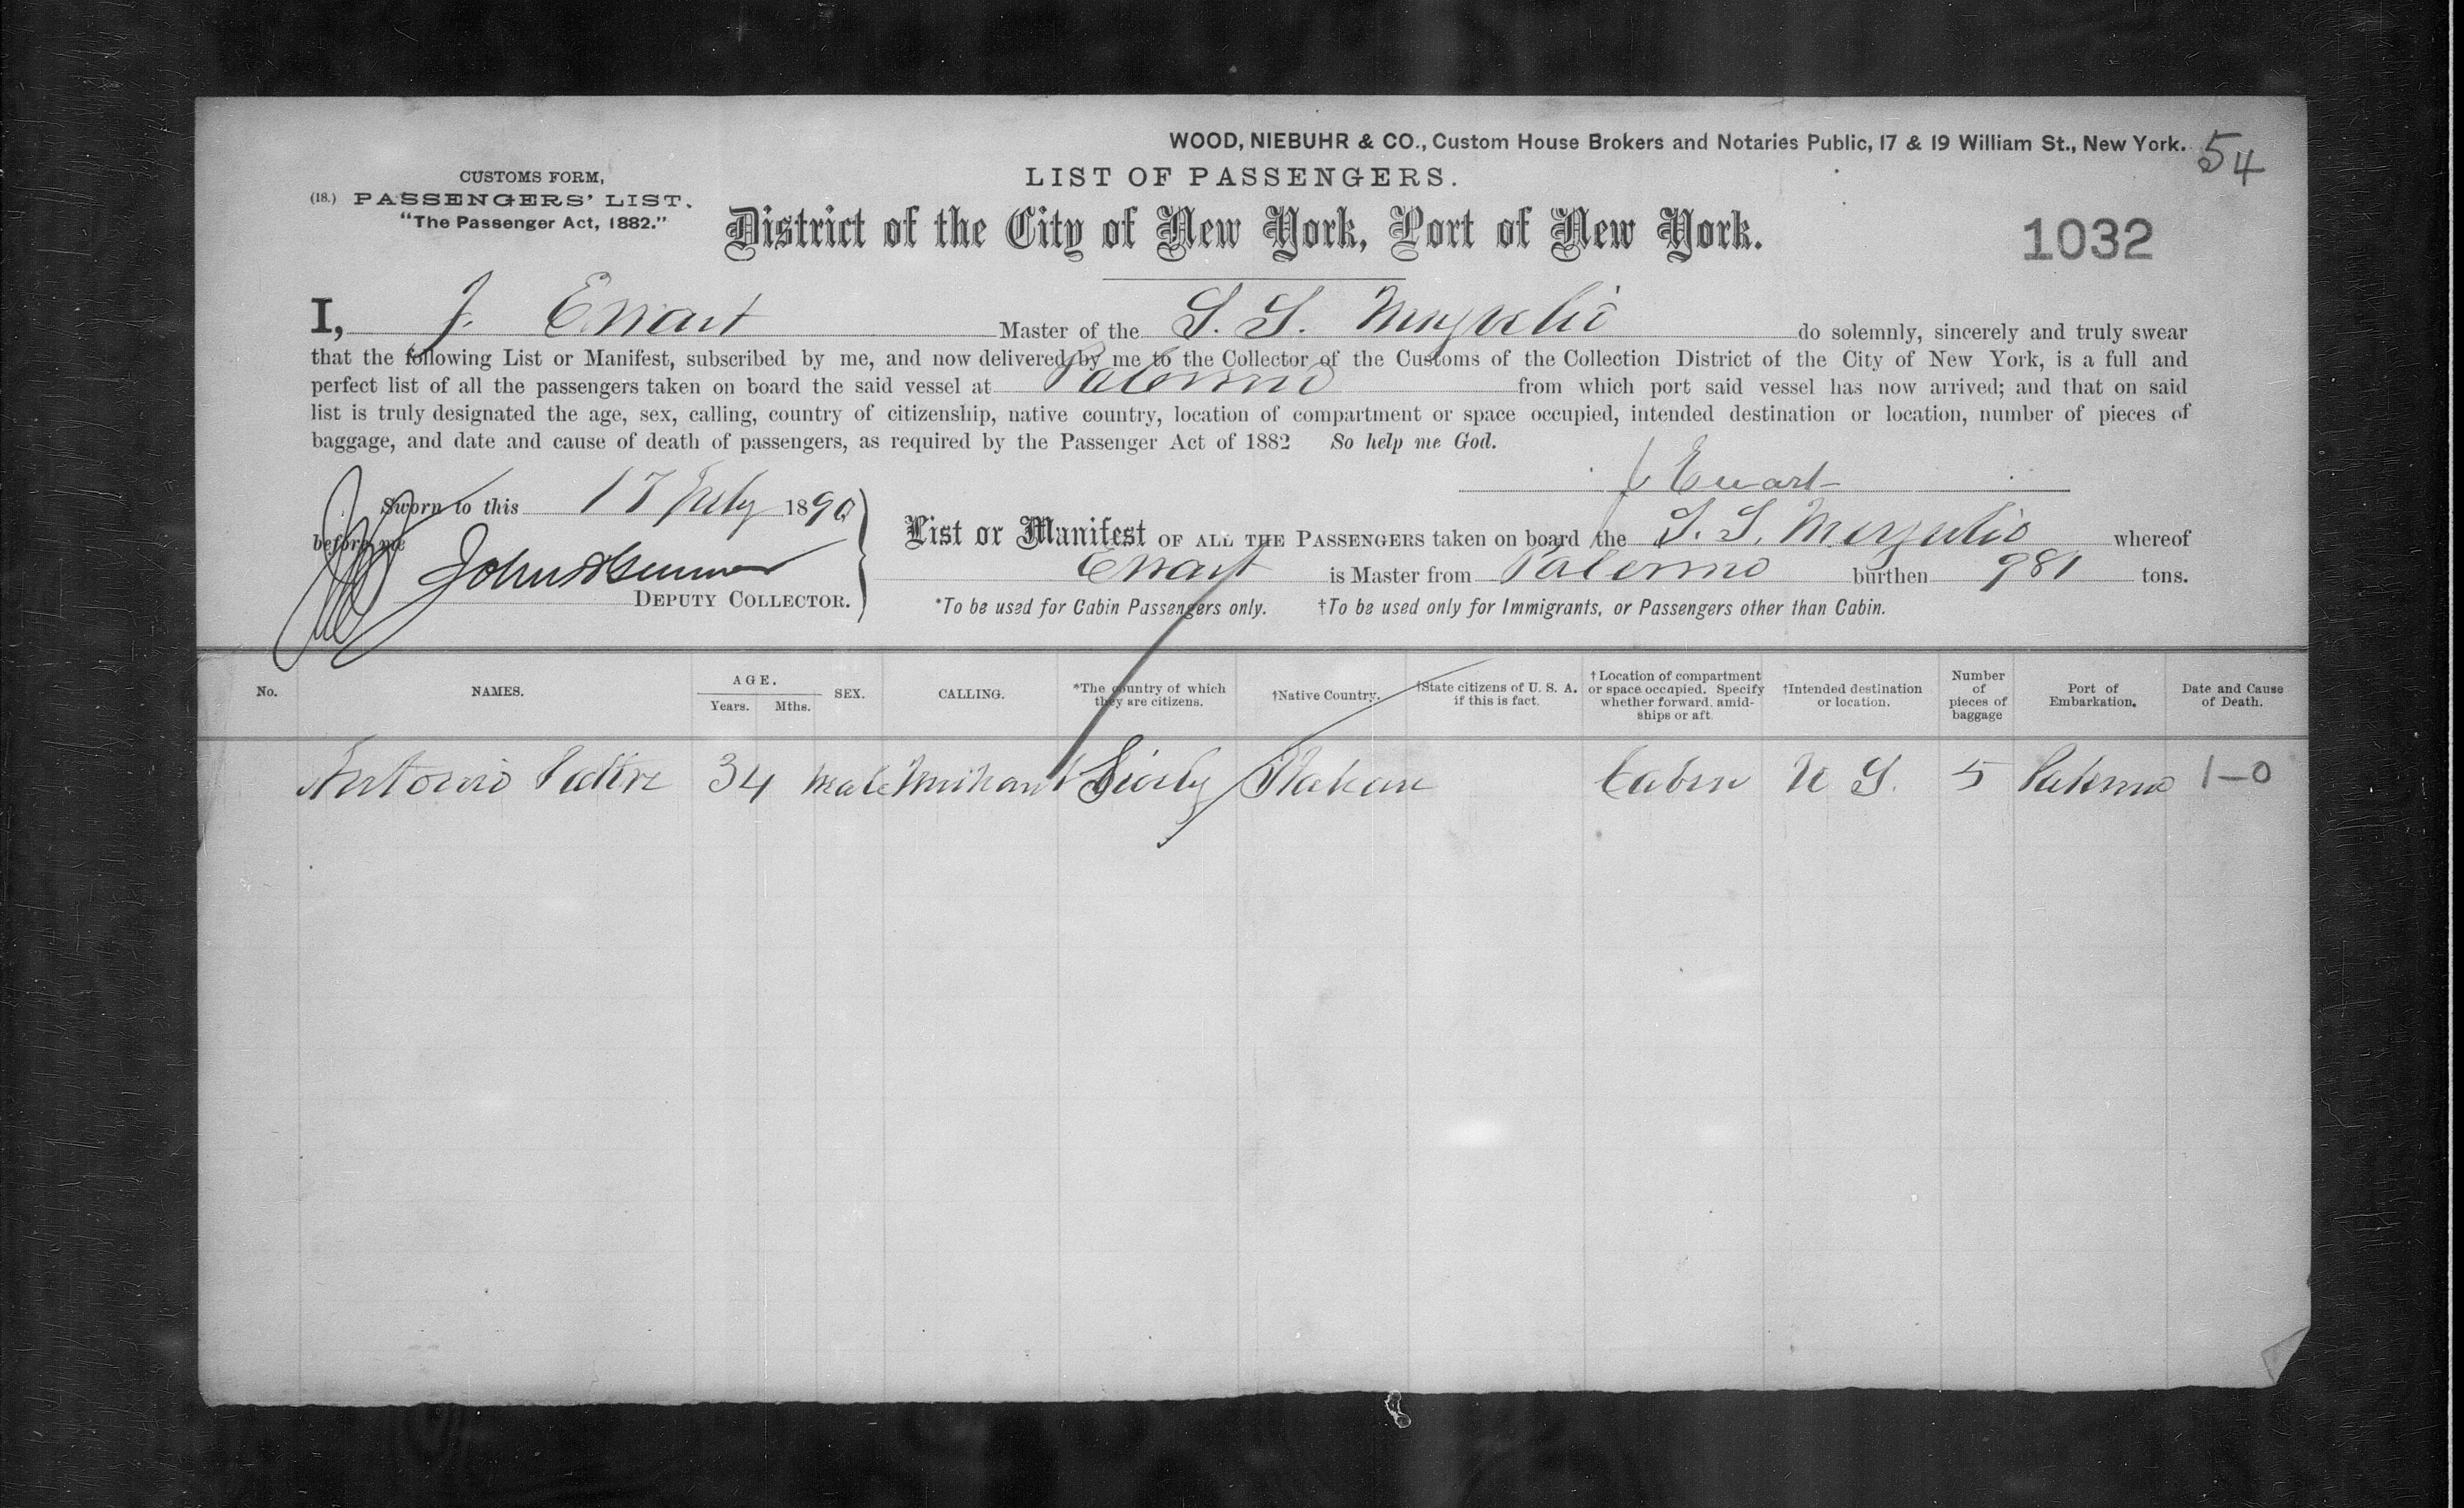 WOOD, NIEBUHR & CO., Custom House Brokers and Notaries Public, 17 & 19 William St., New York.
54
CUSTOMS FORM,
(18.) PASSENGERS' LIST.
"The Passenger Act, 1882."
LIST OF PASSENGERS.
District of the City of New York, Port of New York.
1032
I, J. Ewart Master of the S. S. do solemnly, sincerely and truly swear
that the following List or Manifest, subscribed by me, and now delivered by me to the Collector of the Customs of the Collection District of the City of New York, is a full and
perfect list of all the passengers taken on board the said vessel at Palermo from which port said vessel has now arrived; and that on said
list is truly designated the age, sex, calling, country of citizenship, native country, location of compartment or space occupied, intended destination or location, number of pieces of
baggage, and date and cause of death of passengers, as required by the Passenger Act of 1882 So help me God.
J Ewart
Sworn to this 17 July 1890
before me John
DEPUTY COLLECTOR.
List or Manifest OF ALL THE PASSENGERS taken on board the S. S. whereof
Ewart is Master from Palermo burthen 981 tons.
*To be used for Cabin Passengers only. †To be used only for Immigrants, or Passengers other than Cabin.
No.
NAMES.
AGE.
Years. Mths.
SEX.
CALLING.
*The country of which
they are citizens.
†Native Country.
†State citizens of U. S. A.
if this is fact.
†Location of compartment
or space occupied. Specify
whether forward, amid-
ships or aft.
†Intended destination
or location.
Number
of
pieces of
baggage
Port of
Embarkation.
Date and Cause
of Death.
Antonio 34 Male Merchant Sicily Italian Cabin U S. 5 Palermo 1-0